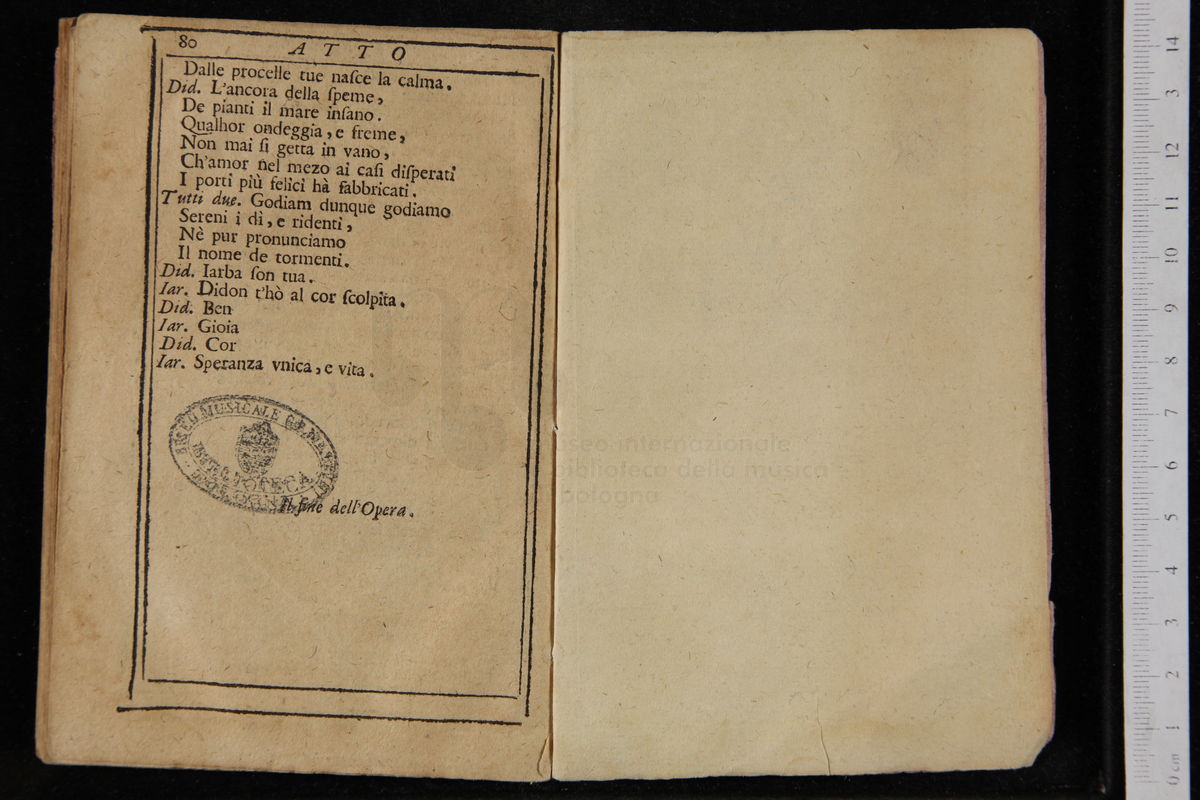 80 ATTO
Dalle procelle tue naſce la calma.
Did. L'ancora della ſpeme,
De pianti il mare inſano.
Qualhor ondeggia, e freme,
Non mai ſi getta in vano,
Ch'amor nel mezo ai caſi diſperati
I porti più felici hà fabbricati.
Tutti due. Godiam dunque godiamo
Sereni i dì, e ridenti,
Nè pur pronunciamo
Il nome de tormenti.
Did. Iarba ſon tua.
Iar. Didon t'hò al cor ſcolpita.
Did. Ben
Iar. Gioia
Did. Cor
Iar. Speranza vnica, e vita.
MUSICALE
Il fine dell'Opera.
museo internazionale
biblioteca della musica
bologna
14
3
12
11
10
9
8
7
6
5
4
3
2
1
0 cm